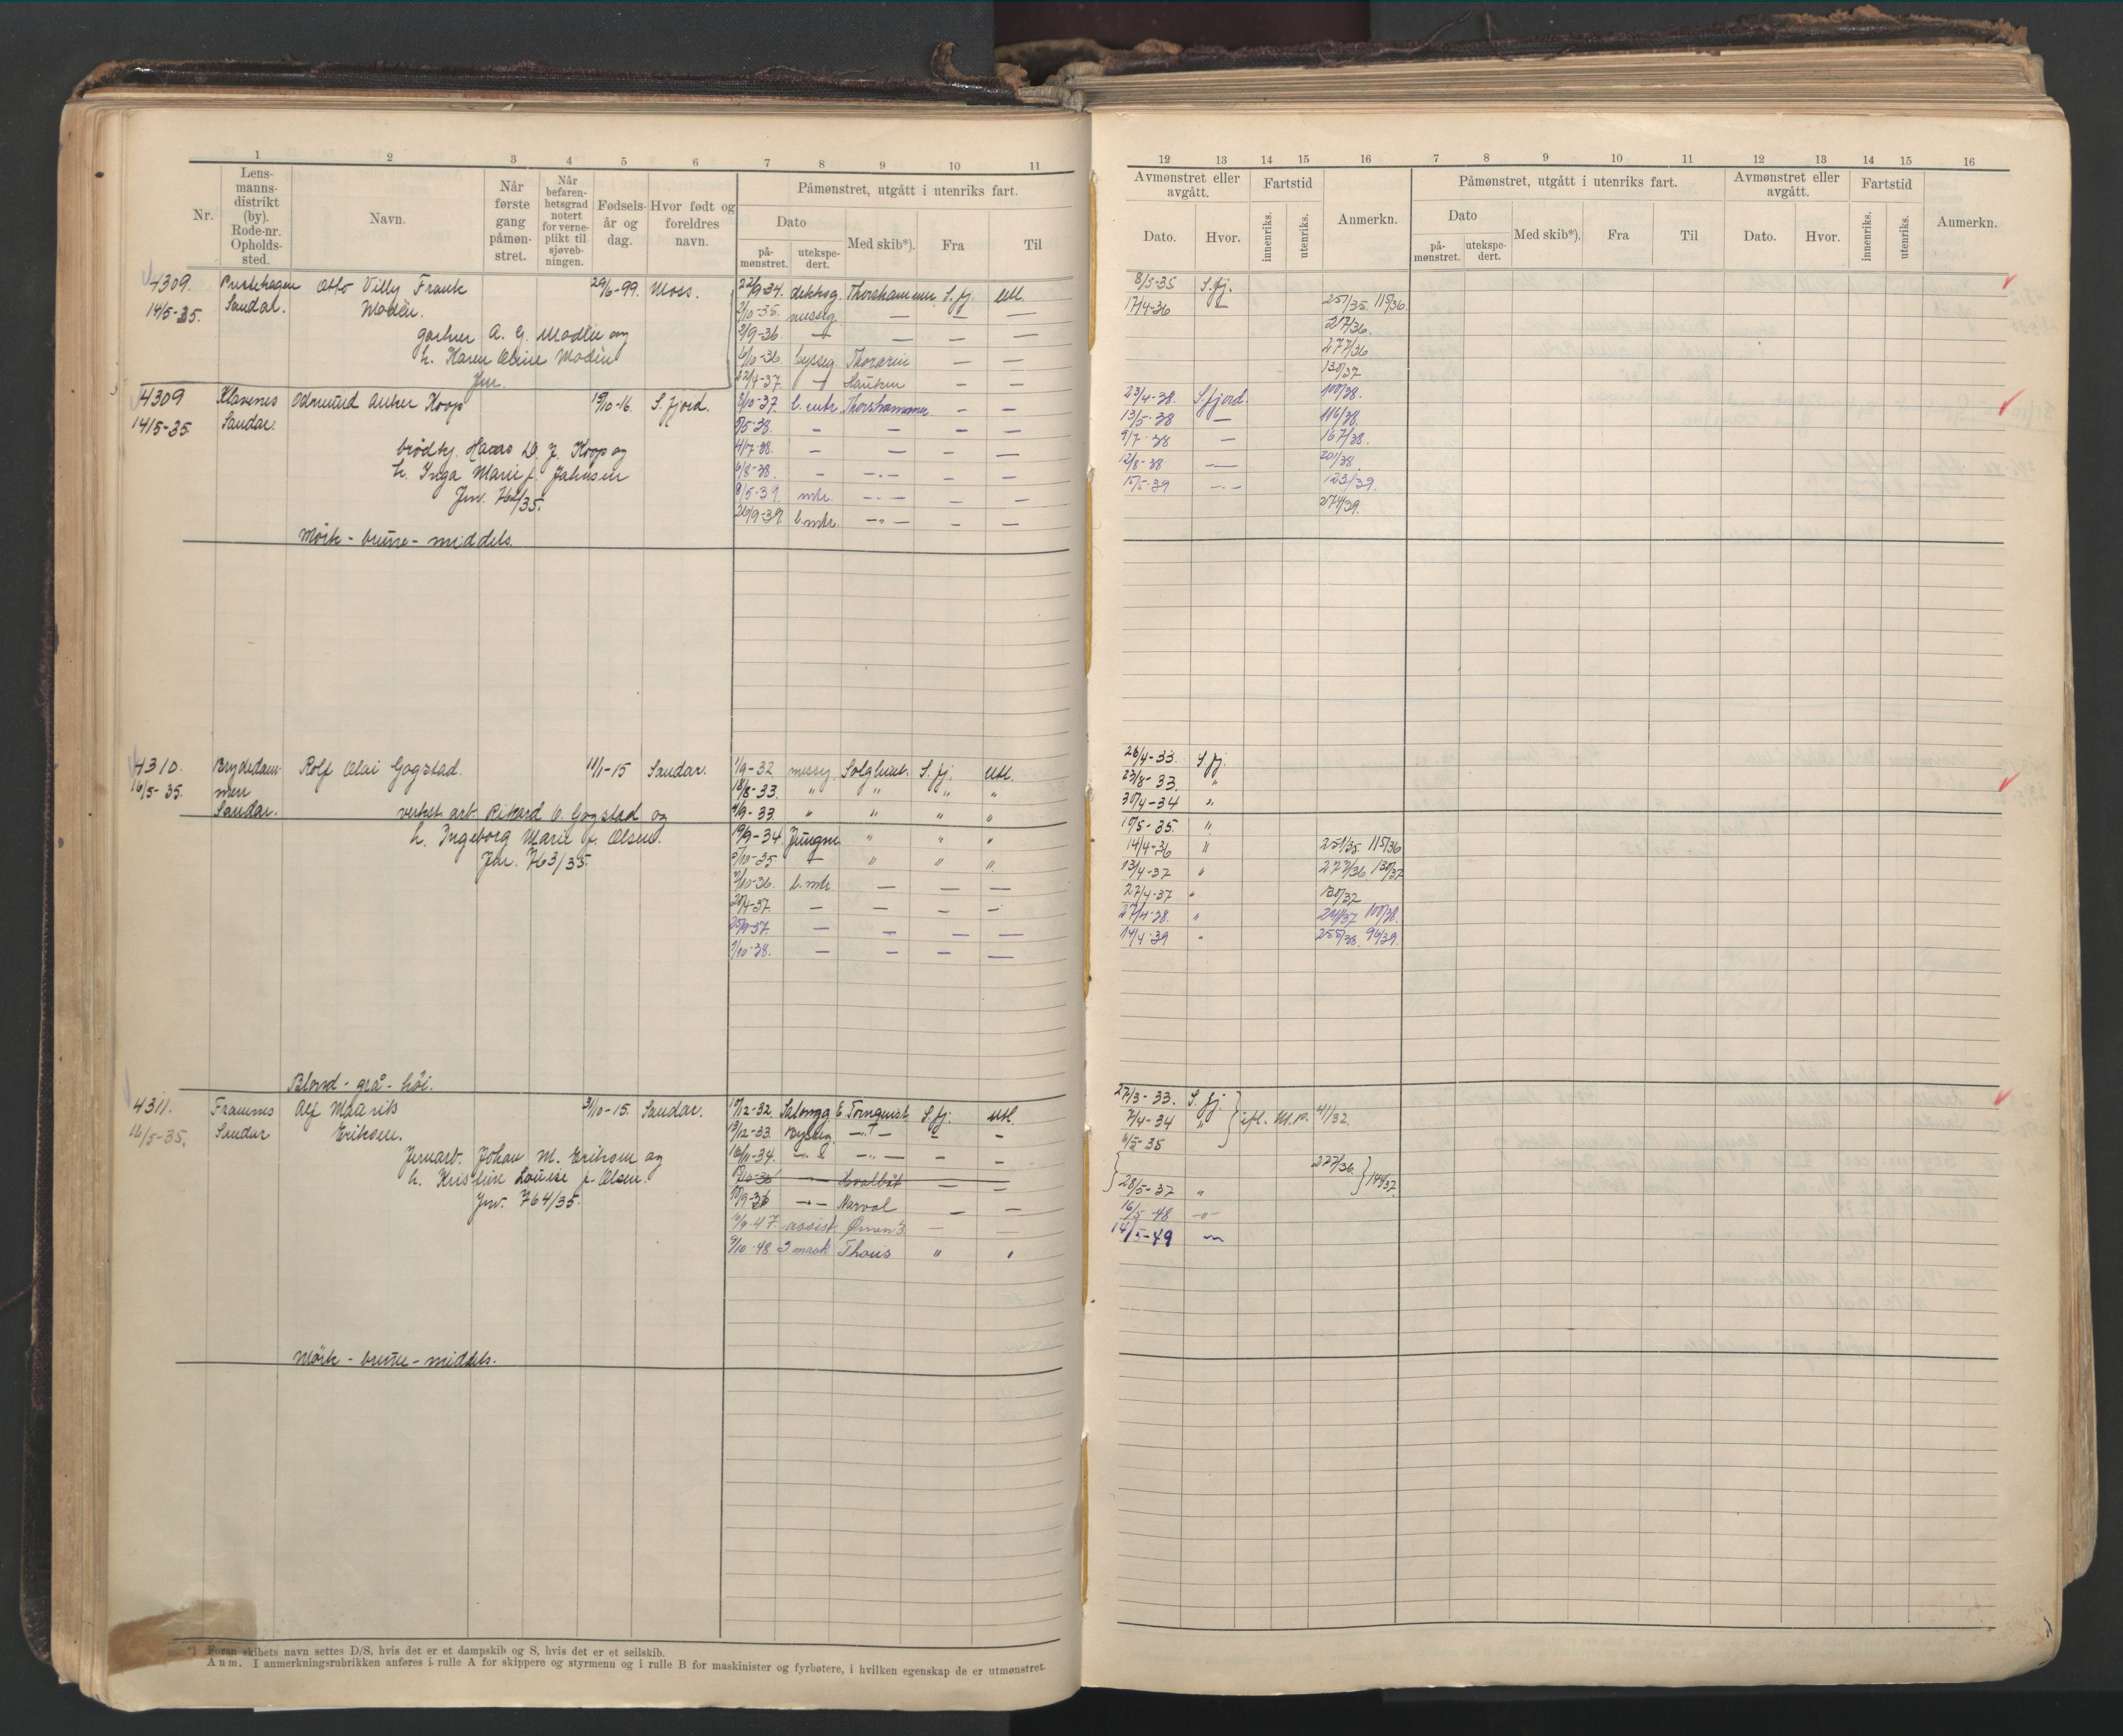 1 2 3 4 5 6 7 8 9 10 11
Nr.
Lens-
manns-
distrikt
(by).
Rode-nr.
Opholds-
sted.
Navn.
Når
første
gang
påmøn-
stret.
Når
befaren-
hetsgrad
notert
for verne-
plikt til
sjøveb-
ningen.
Fødsels-
år og
dag.
Hvor født og
foreldres
navn.
Påmønstret, utgått i utenriks fart.
Dato
på-
mønstret.
utekspe-
dert.
Med skib*).
Fra
Til
4309. Prestehagen Otto Villy Frank 29/6-99. Moss. 22/9-34. dekksg. Thorshammer, S. fj. Utl.
14/5-35. Sandar. Modén. 2/10-35. messg. — — —
gartner A. G. Modén og 2/9-36. — — — —
h. Karen Oline Modén 6/10-36 bysseg Thorarin — —
Jnr. 22/4-37. — Hauken — —
4309 Klavenes Odmund Anker Koop 19/10-16. S. fjord. 8/10-37. Thorshammer — —
14/5-35. Sandar. 9/5-38. — — — —
4/7-38. — — — —
h. Inga Marie f. Jahnsen 6/8-38. — — — —
Jnr. 762/35. 8/5-39. mtr. — — —
26/9-39. b.mtr. — — —
Mørk - brune - middels.
4310. Brydedam- Rolf Olai Gogstad. 11/1-15 Sandar. 1/9-32 messg. Solglimt. S. fj. Utl.
16/5-35. men 18/8-33. " " " "
Sandar. verkst. arb. Rikard O. Gogstad og 4/9-33 " " " "
h. Ingeborg Marie f. Olsen. 19/9-34. Jungm. " " "
Jnr. 763/35. 3/10-35 — " " "
2/10-36. b.mtr. — — —
20/4-37. — — — —
25/9-37. — — — —
1/10-38. — — — —
Blond - grå - høi.
4311. Framnes Alf Maurits 31/10-15. Sandar. 10/12-32. Salongg. E. Tornquist S. fj. Utl.
16/5-35. Sandar Eriksen. 13/12-33. Bysseg. — " — — —
Jernarb. Johan M. Eriksen og 16/11-34. — " — — " — — —
h. Kristine Louise f. Olsen. 13/10-36 — Hvalbåt — —
Jnr. 764/35. 10/9-36 — " — Narval — —
6/9-47. assist. Ørnen 3. — —
9/10-48 3 mask Thoris " "
Mørk - brune - middels.
*) Foran skibets navn settes D/S, hvis det er et dampskib og S, hvis det er et seilskib.
Anm. I anmerkningsrubrikken anføres i rulle A for skippere og styrmenn og i rulle B for maskinister og fyrbøtere, i hvilken egenskap de er utmønstret.
12 13 14 15 16 7 8 9 10 11 12 13 14 15 16
Avmønstret eller
avgått.
Dato.
Hvor.
Fartstid
innenriks.
utenriks.
Anmerkn.
Påmønstret, utgått i utenriks fart.
Dato
på-
mønstret.
utekspe-
dert.
Med skib*).
Fra
Til
Avmønstret eller
avgått.
Dato.
Hvor.
Fartstid
innenriks.
utenriks.
Anmerkn.
8/5-35 S. fj.
17/4-36 — 251/35. 115/36.
217/36.
277/36
130/37
23/4-38. S. fjord. 100/38.
13/5-38 — 116/38.
9/7-38 — 167/38.
12/8-38 — 201/38.
15/5-39 — 123/39.
274/39.
26/4-33. S. fj.
23/8-33. "
30/4-34 "
10/5-35. "
14/4-36 " 251/35. 115/36
13/4-37 " 277/36. 130/37
27/4-37 " 130/37
27/4-38. " 241/37. 100/38.
14/4-39 " 255/38. 96/39.
27/3-33. S. fj.
7/4-34 " ifl. M.p. 4/1/32.
6/5-35
277/36.
28/5-37 " 144/37
16/5-48 — " —
14/5-49 —